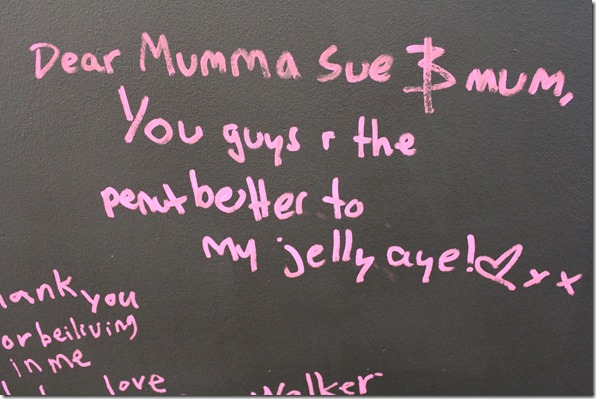 Dear Mumma Sue & mum,
You guys r the
penut better to
my jelly aye! ♡xx
hank you
or beilving
in me
love Walker